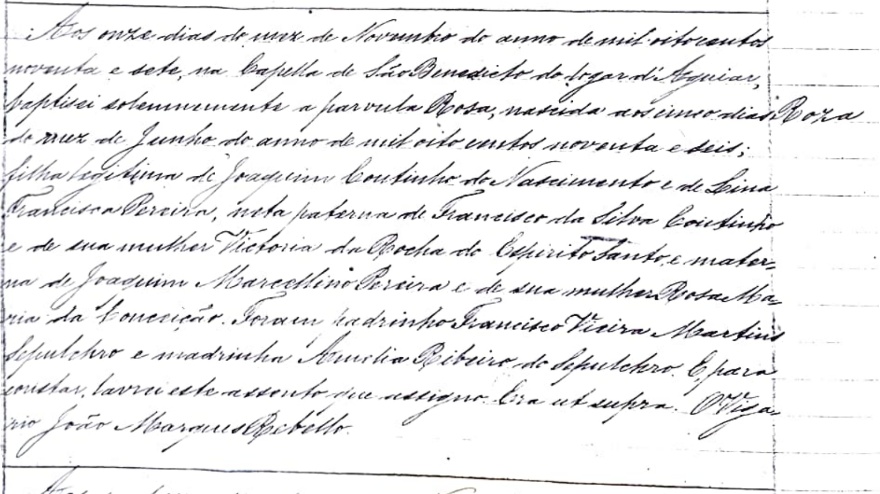 Aos onze dias do mez de Novembro do anno de mil oitocentos
noventa e sete, na Capella de São Benedicto do logar d'Aguiar,
baptisei solemnemente a parvula Rosa, nascida aos cinco dias
Roza
do mez de Junho do anno de mil oito centos noventa e seis;
filha legitima de Joaquim Coutinho do Nascimento e de Lina
Francisca Pereira, neta paterna de Francisco da Silva Coutinho
e de sua mulher Victoria da Rocha do Espirito Santo, e mater-
na de Joaquim Marcellino Pereira e de sua mulher Rosa Ma-
ria da Conceição. Foram padrinho Francisco Vieira Martins
Sepulchro e madrinha Amelia Ribeiro do Sepulchro. E para
constar, lavrei este assento que assigno. Era ut supra. O Viga-
rio João Marques Rebello.